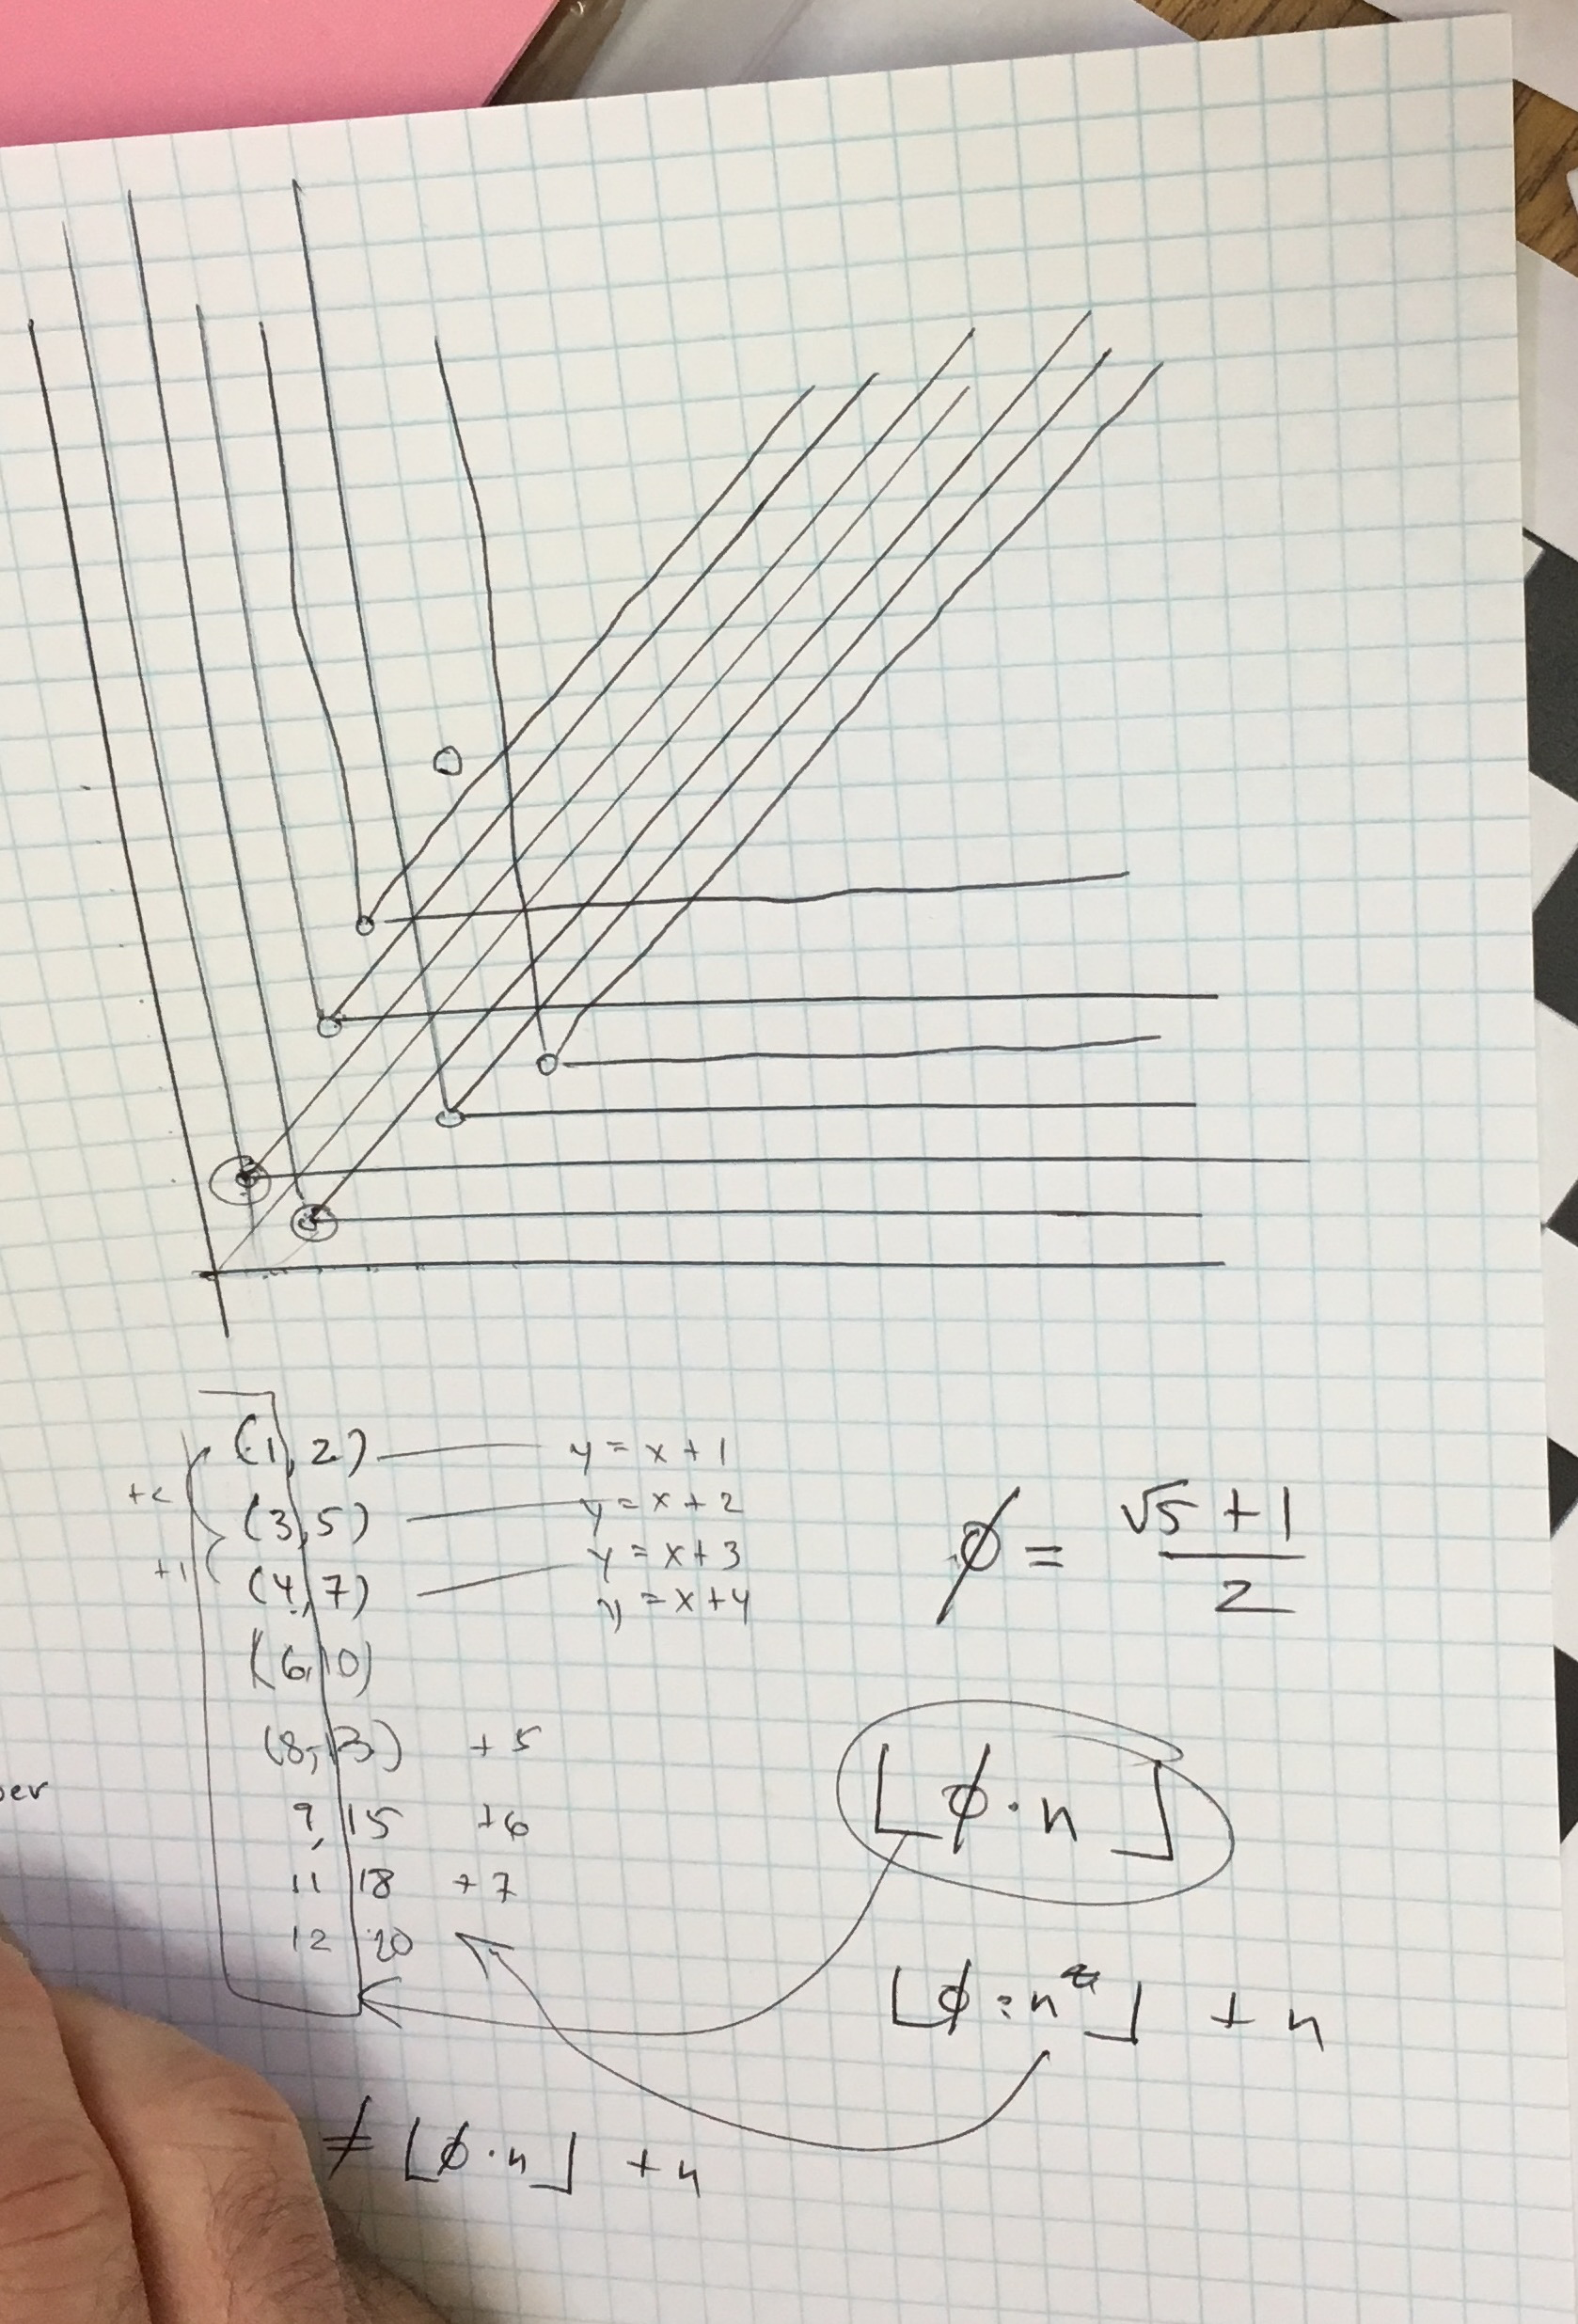 (1,2) y = x + 1
+2
(3,5) y = x + 2
y = x + 3
+1
(4,7)
y = x + 4
(6,10)
(8,13) + 5
9, 15 +6
11 18 + 7
12 20
ϕ = √5 + 1 / 2
⌊ϕ · n⌋
⌊ϕ · n⌋ + n
≠ ⌊ϕ · n⌋ + n